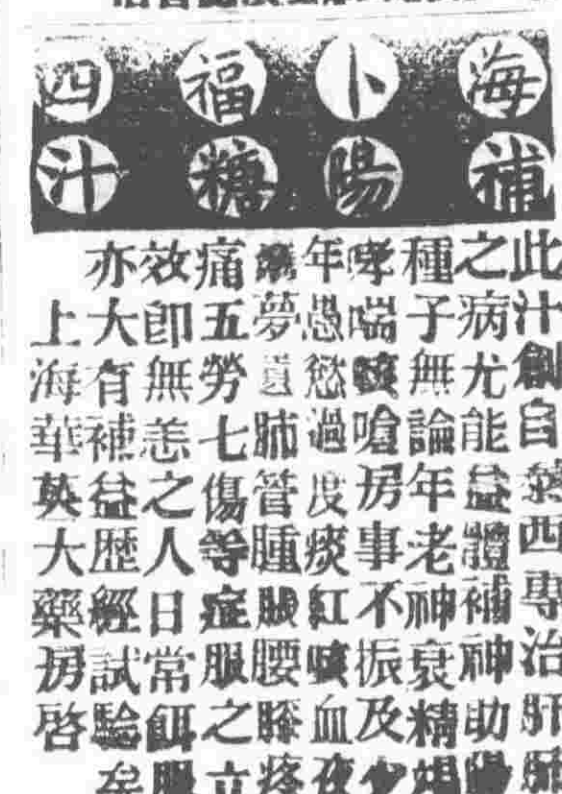 海卜福四
補陽糖汁
此汁創自泰西專治肝肺
之病尤能益體補神助陽
種子無論年老神衰精竭
哮喘嗆房事不振及少
年愚慾過度痰紅血夜
夢遺肺管腫脹腰膝疼
痛五勞七傷等症服之立
效即無恙之人日常餌服
亦大有補益歷經試驗矣
上海華英大藥房啓